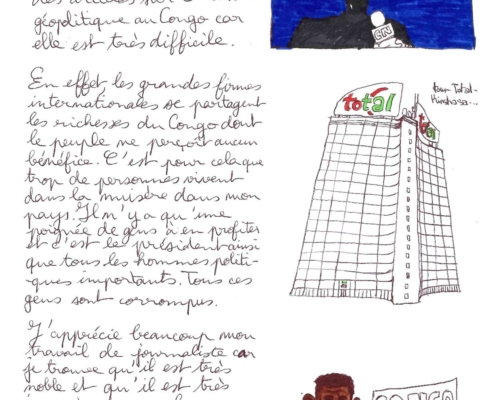 géopolitique au Congo car
elle est très difficile.
En effet les grandes firmes
internationales se partagent
les richesses du Congo dont
le peuple ne perçoit aucun
bénéfice. C'est pour cela que
trop de personnes vivent
dans la muisère dans mon
pays. Il n'y a qu'une
poignée de gens à en profiter
et c'est le président ainsi
que tous les hommes politi-
-ques importants. Tous ces
gens sont corrompus.
J'apprécie beaucoup mon
travail de journaliste car
je trouve qu'il est très
noble et qu'il est très
CN
total
total
tour Total-
Kinshasa...